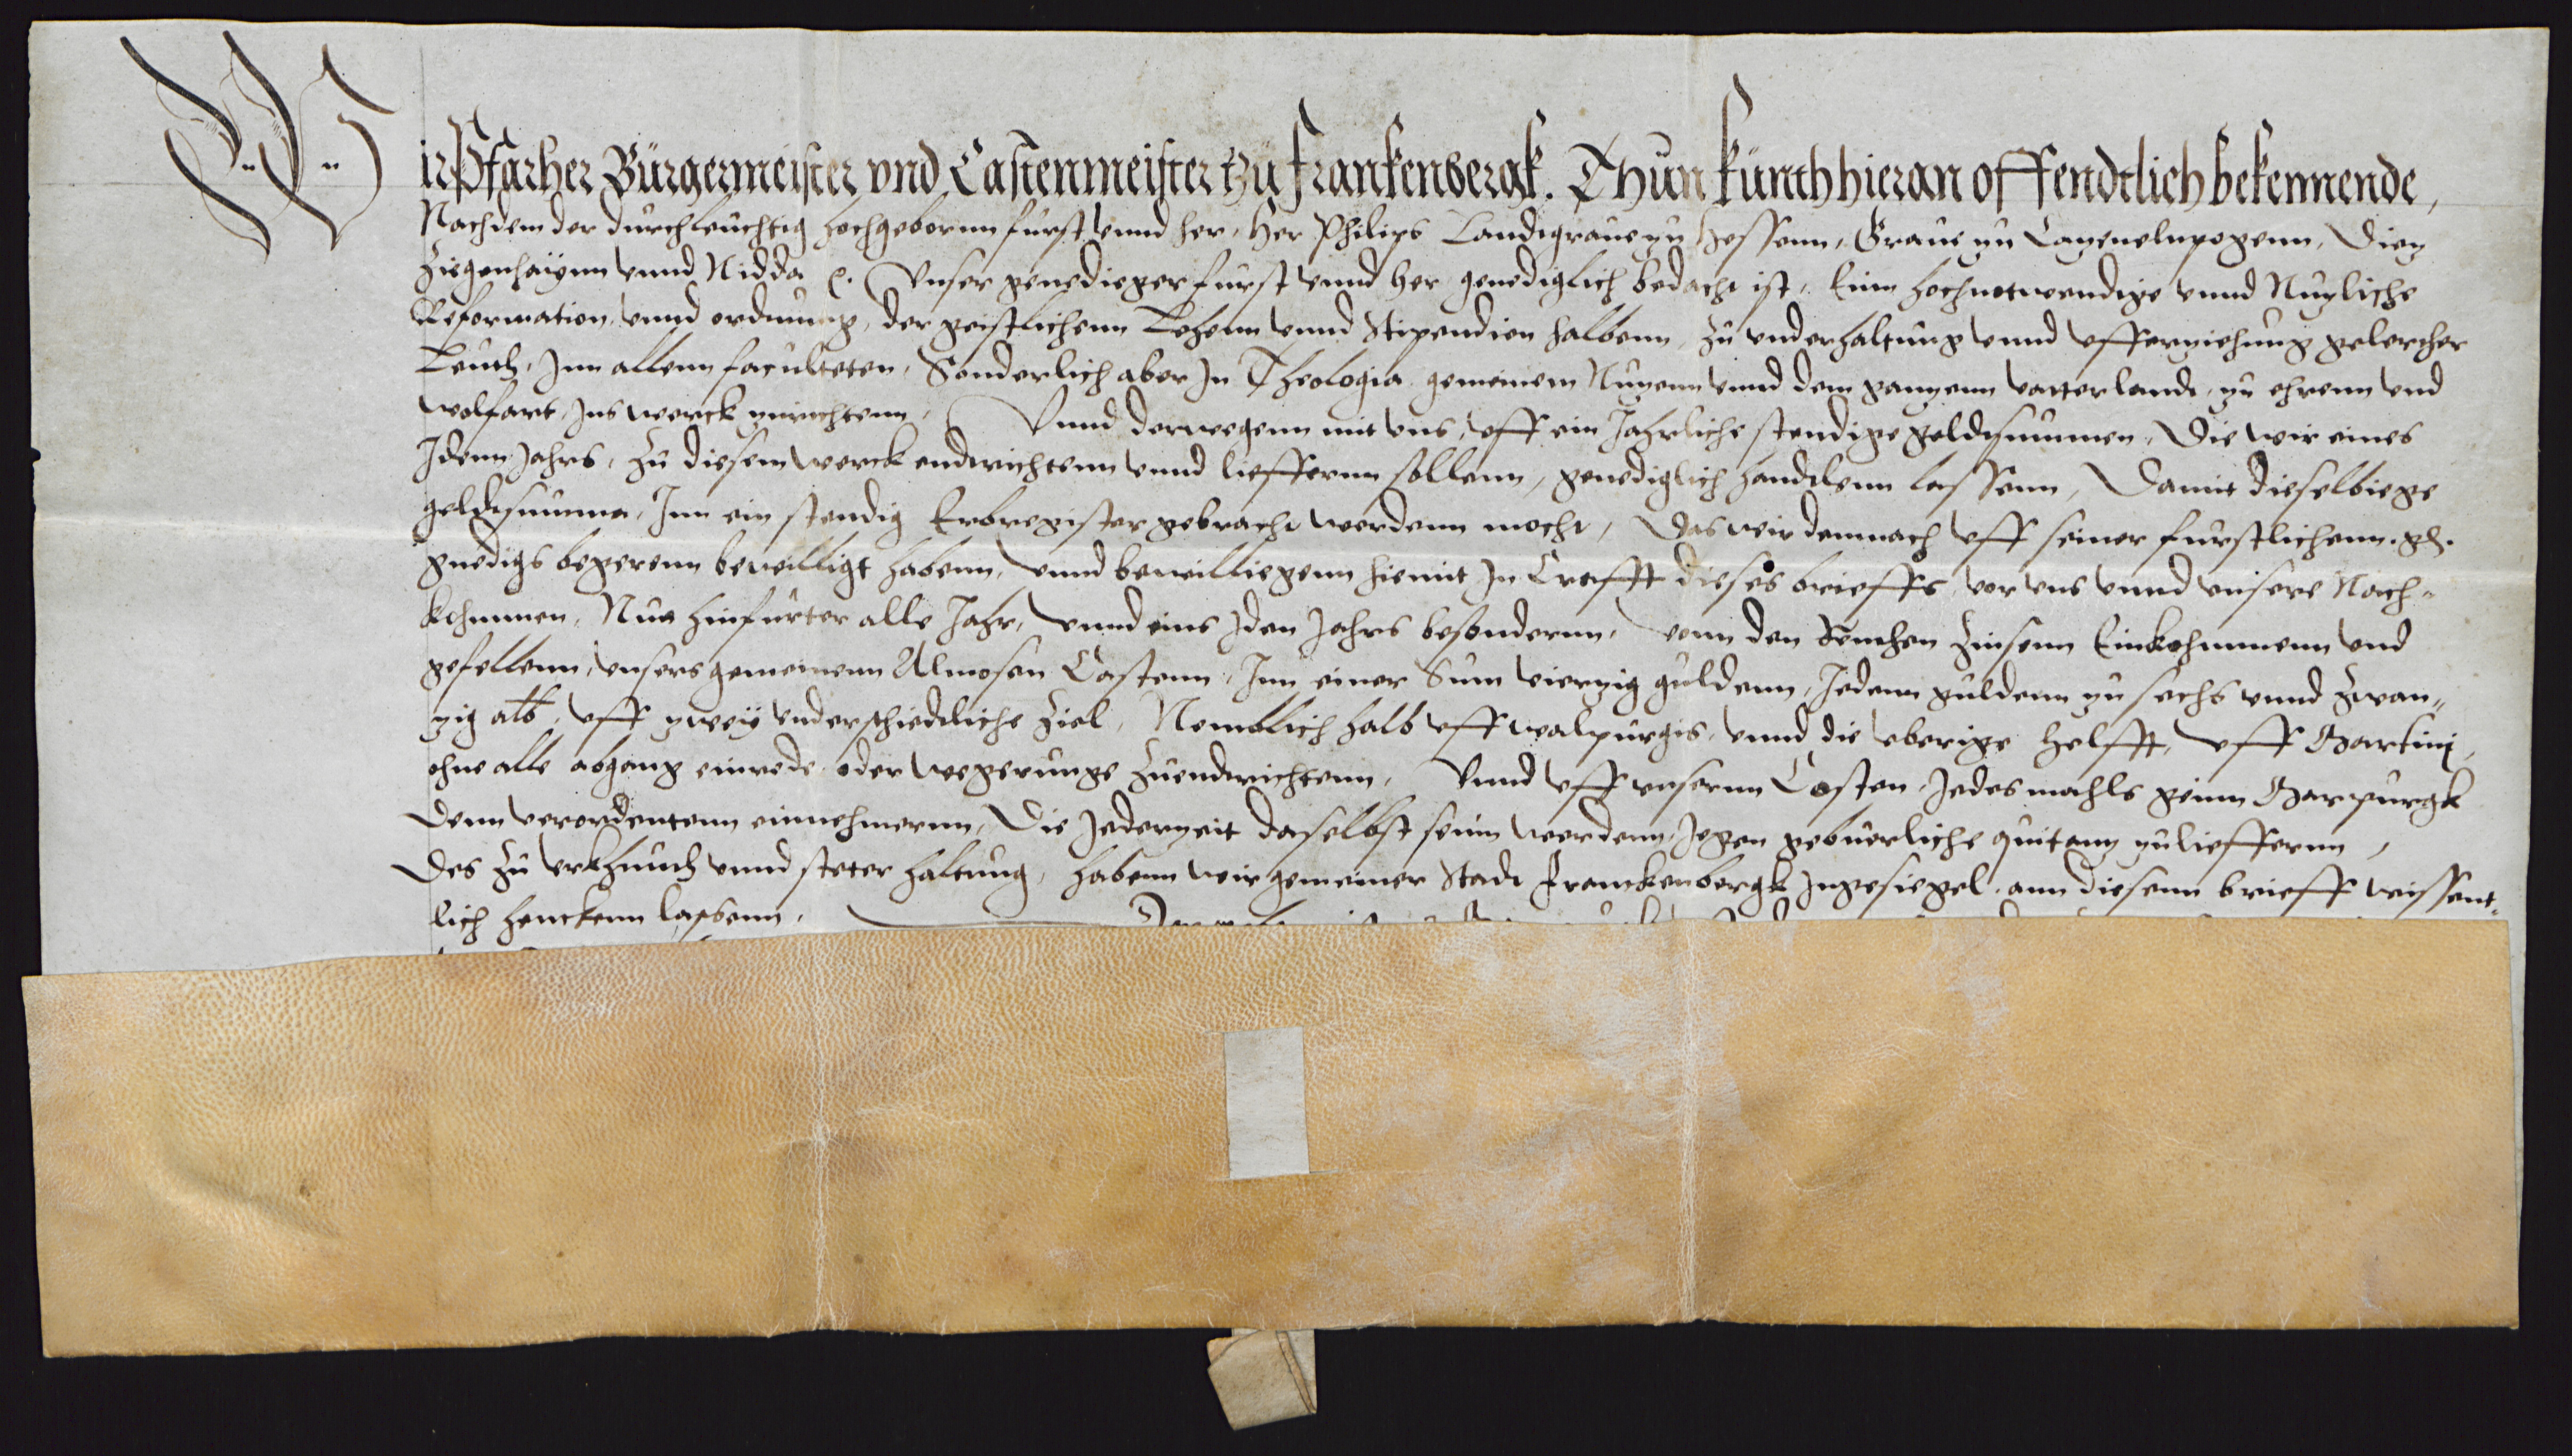 Wir Pfarher Bürgermeister vnd Castenmeister tzü franckenbergk. Thün künth hieran offendtlich bekennende,
Nachdem der durchleuchtig hochgebornn furst vnnd her, Her Philips Landtgraue zu Hessenn, Graue zu Catzenelnpogenn, Dietz
Ziegenhaÿnn vnnd Nidda ꝛc. Vnser genedieger furst vnnd her genediglich bedacht ist, Einn hochnotwendige vnnd Nutzliche
Reformation vnnd ordnung, der geistlichenn Lehenn vnnd Stipendien halbenn, zu vnderhaltung vnnd vfferziehung gelercher
Leuth, Inn allenn faculteten, Sonderlich aber In Theologia gemeinem Nutzenn vnnd dem gantzenn vatterlandt, zu ehrenn vnd
wolfart, Ins werck zurichtenn, Vnnd derwegenn mit vns, vff ein Jahrliche stendige geldtsummen, Die wir eines
Idenn Jahrs, Zu diesem werck endtrichtenn vnnd lieffernn sollenn, genediglich handtlenn lassenn, Damit dieselbiege
geldtsumma, Inn ein stendig Erbregister gebracht werdenn mocht, Das wir demnach vff seiner furstlichenn. gh.
gnedigs begerenn bewilligt habenn, vnnd bewilliegenn hiemit In Crafft dieses brieffs vor vns vnnd vnsere Nach-
kohmmen, Nun hinfurter alle Jahr, vnnd eins Iden Jahrs besondernn, vonn den Renthen Zinsenn Einkohmmenn vnd
gefellenn, vnsers gemeinenn Almosen Castenn, Inn einer Sum viertzig guldenn, Jedenn guldenn zu sechs vnnd Zwan„
tzig alb, vff zweÿ vnderschiedtliche Ziel, Nemblich halb vff walpurgis, vnnd die vberige helfft, vff Martinj,
ohne alle abgang einrede oder wegerunge Zuendtrichtenn, Vnnd vff vnsernn Costen, Jedes mahls geinn Marpurgk
denn verordentenn einnehmernn, Die Jederzeit daselbst seinn werdenn, Jegen gebuerliche quitantz zulieffernn,
Des Zu vrkhundt vnnd steter haltung, habenn wir gemeiner Stadt Franckenbergk Ingesiegel ann diesenn brieff wissent-
lich henckenn lassenn,